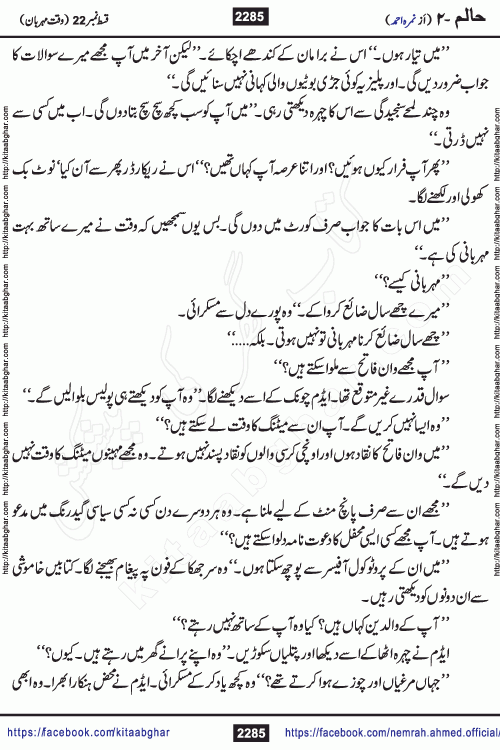 حالم -۲ (از نمرہ احمد)
2285
قسط نمبر 22 (وقت مہربان)
’’میں تیار ہوں۔‘‘ اس نے برا مان کے کندھے اچکائے۔ ’’لیکن آخر میں آپ مجھے میرے سوالات کا
جواب ضرور دیں گی۔ اور پلیز یہ کوئی جڑی بوٹیوں والی کہانی نہیں سنائیں گی۔‘‘
وہ چند لمحے سنجیدگی سے اس کا چہرہ دیکھتی رہی۔ ’’میں آپ کو سب کچھ سچ سچ بتا دوں گی۔ اب میں کسی سے
نہیں ڈرتی۔‘‘
’’پھر آپ فرار کیوں ہوئیں؟ اور اتنا عرصہ آپ کہاں تھیں؟‘‘ اس نے ریکارڈر پھر سے آن کیا‘ نوٹ بک
کھولی اور لکھنے لگا۔
’’میں اس بات کا جواب صرف کورٹ میں دوں گی۔ بس یوں سمجھیں کہ وقت نے میرے ساتھ بہت
مہربانی کی ہے۔‘‘
’’مہربانی کیسے؟‘‘
’’میرے چھے سال ضائع کروا کے۔‘‘ وہ پورے دل سے مسکرائی۔
’’چھے سال ضائع کرنا مہربانی تو نہیں ہوتی۔ بلکہ.....‘‘
’’آپ مجھے وان فاتح سے ملوا سکتے ہیں؟‘‘
سوال قدرے غیر متوقع تھا۔ ایڈم چونک کے اسے دیکھنے لگا۔ ’’وہ آپ کو دیکھتے ہی پولیس بلوالیں گے۔‘‘
’’وہ ایسا نہیں کریں گے۔ آپ ان سے میٹنگ کا وقت لے سکتے ہیں؟‘‘
’’میں وان فاتح کا نقاد ہوں اور اونچی کرسی والوں کو نقاد پسند نہیں ہوتے۔ وہ مجھے مہینوں میٹنگ کا وقت نہیں
دیں گے۔‘‘
’’مجھے ان سے صرف پانچ منٹ کے لیے ملنا ہے۔ وہ ہر دوسرے دن کسی نہ کسی سیاسی گیدرنگ میں مدعو
ہوتے ہیں۔ آپ مجھے کسی ایسی محفل کا دعوت نامہ دلوا سکتے ہیں؟‘‘
’’میں ان کے پروٹوکول آفیسر سے پوچھ سکتا ہوں۔‘‘ وہ سر جھکا کے فون پہ پیغام بھیجنے لگا۔ کتابیں خاموشی
سے ان دونوں کو دیکھتی رہیں۔
’’آپ کے والدین کہاں ہیں؟ کیا وہ آپ کے ساتھ نہیں رہتے؟‘‘
ایڈم نے چہرہ اٹھا کے اسے دیکھا اور پتلیاں سکوڑیں۔ ’’وہ اپنے پرانے گھر میں رہتے ہیں۔ کیوں؟‘‘
’’جہاں مرغیاں اور چوزے ہوا کرتے تھے؟‘‘ وہ کچھ یاد کر کے مسکرائی۔ ایڈم نے محض ہنکارا بھرا۔ وہ ابھی
https://facebook.com/kitaabghar
2285
https://facebook.com/nemrah.ahmed.official/
http://kitaabghar.com http://kitaabghar.com http://kitaabghar.com http://kitaabghar.com http://kitaabghar.com
http://kitaabghar.com http://kitaabghar.com http://kitaabghar.com http://kitaabghar.com http://kitaabghar.com
kitaabghar.com